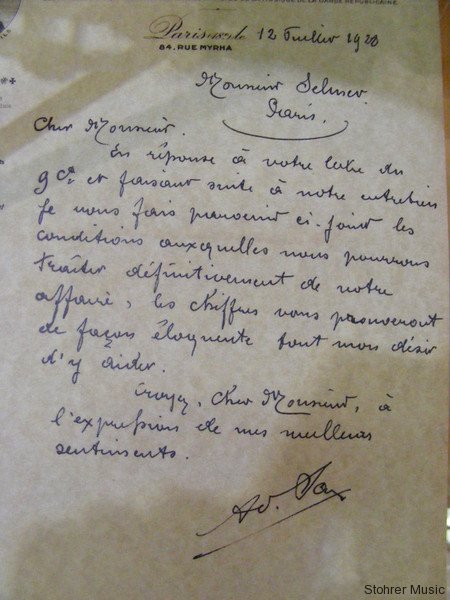 DE LA MUSIQUE DE LA GARDE RÉPUBLICAINE
Paris (18e) le 12 Juillet 1928
84, RUE MYRHA
Monsieur Selmer.
Paris.
Cher Monsieur.
En réponse à votre lettre du
9 ct et faisant suite à notre entretien
je vous fais parvenir ci-joint les
conditions auxquelles nous pourrons
traiter définitivement de notre
affaire, les chiffres vous prouveront
de façon éloquente tout mon désir
d'y aider.
Croyez, Cher Monsieur, à
l'expression de mes meilleurs
sentiments.
Ad. Sax
Stohrer Music